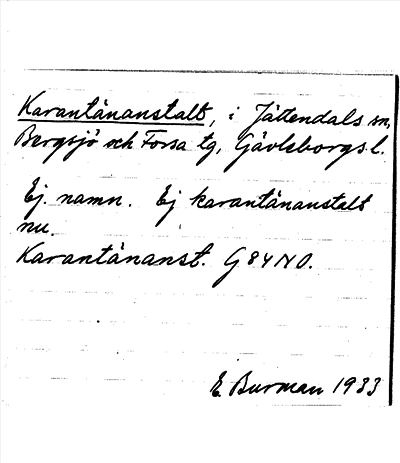 Karantänanstalt, i Jättendals sn,
Bergsjö och Forsa tg, Gävleborgs l.
Ej namn. Ej karantänanstalt
nu.
Karantänanst. G84NO.
E. Burman 1933